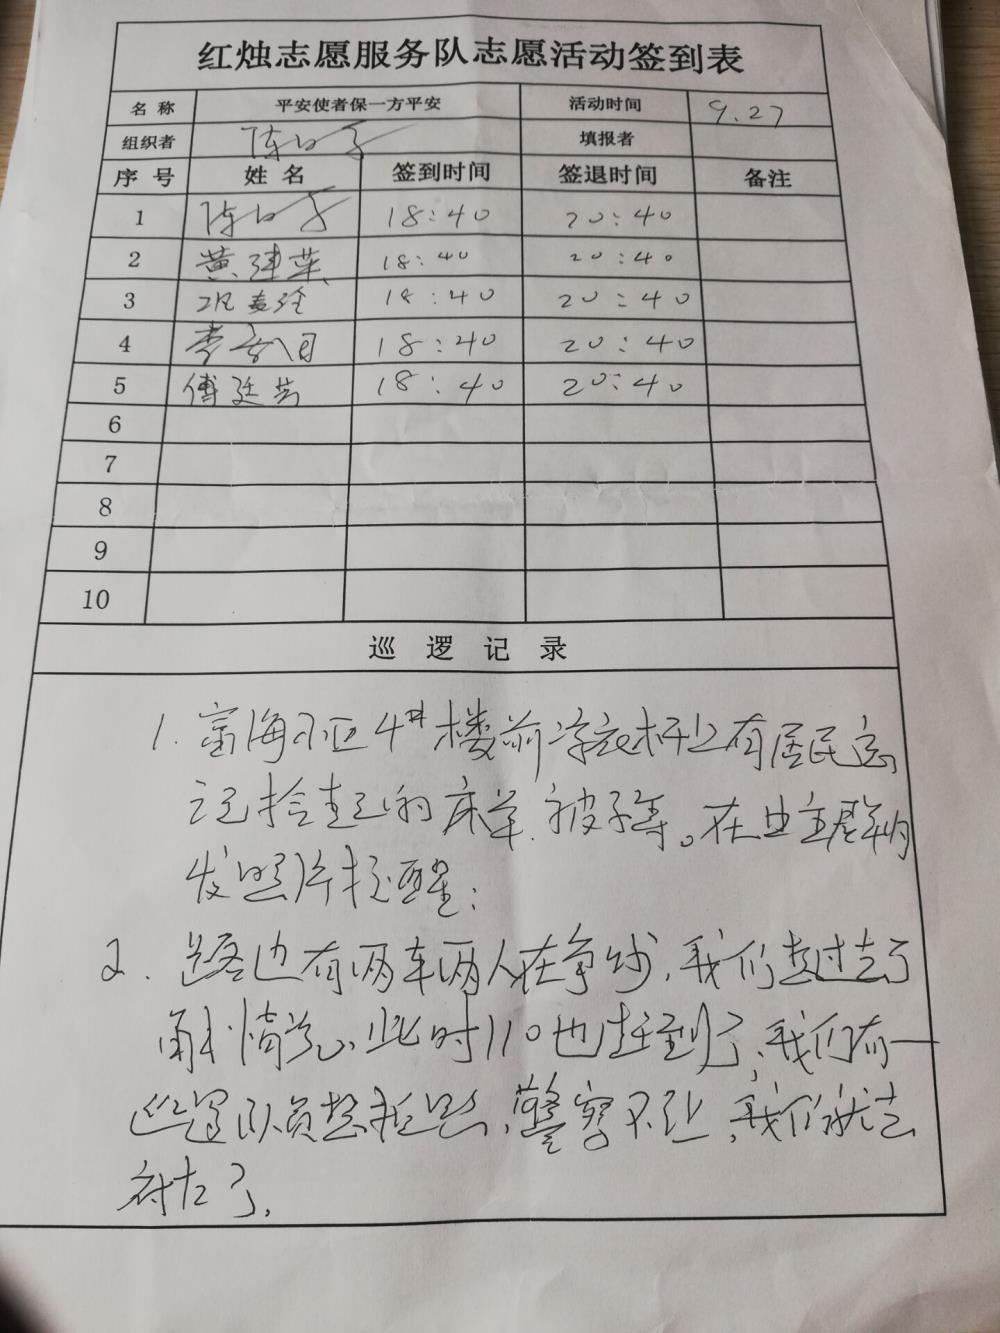 红烛志愿服务队志愿活动签到表
名 称 平安使者保一方平安 活动时间 9.27
组织者 陈 填报者
序 号 姓 名 签到时间 签退时间 备注
1 陈 18:40 20:40
2 黄建英 18:40 20:40
3 18:40 20:40
4 李 18:40 20:40
5 傅廷芸 18:40 20:40
6
7
8
9
10
巡 逻 记 录
1. 富海小区4#楼前凉衣杆上有居民忘
记拾起的床单、被子等。在业主群内
发照片提醒;
2. 路边有两车两人在争吵,我们赶过去了
解情况、此时110也赶到了,我们有一
巡逻队员想拍照,警察不让,我们就去
村大了。